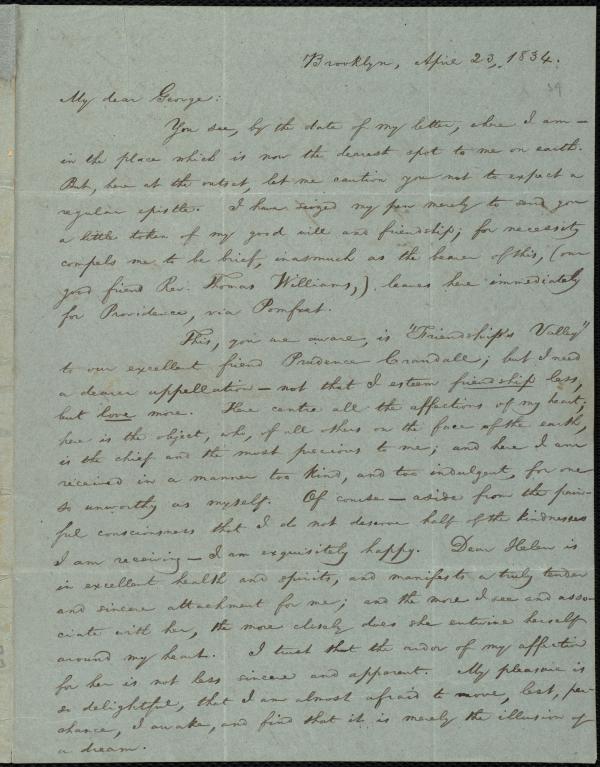 Brooklyn, April 23, 1834.
My dear George:
You see, by the date of my letter, where I am —
in the place which is now the dearest spot to me on earth.
But, here at the outset, let me caution you not to expect a
regular epistle. I have seized my pen merely to send you
a little token of my good will and friendship; for necessity
compels me to be brief, inasmuch as the bearer of this, (our
good friend Rev. Thomas Williams,) leaves here immediately
for Providence, via Pomfret.
This, you are aware, is "Friendship's Valley"
to our excellent friend Prudence Crandall; but I need
a dearer appellation — not that I esteem friendship less,
but love more. Here centre all the affections of my heart;
here is the object, who, of all others on the face of the earth,
is the chief and the most precious to me; and here I am
received in a manner too kind, and too indulgent, for one
so unworthy as myself. Of course — aside from the pain-
ful consciousness that I do not deserve half of the kindnesses
I am receiving — I am exquisitely happy. Dear Helen is
in excellent health and spirits, and manifests a truly tender
and sincere attachment for me; and the more I see and asso-
ciate with her, the more closely does she entwine herself
around my heart. I trust that the ardor of my affection
for her is not less sincere and apparent. My pleasure is
so delightful, that I am almost afraid to move, lest, per-
chance, I awake, and find that it is merely the illusion of
a dream.